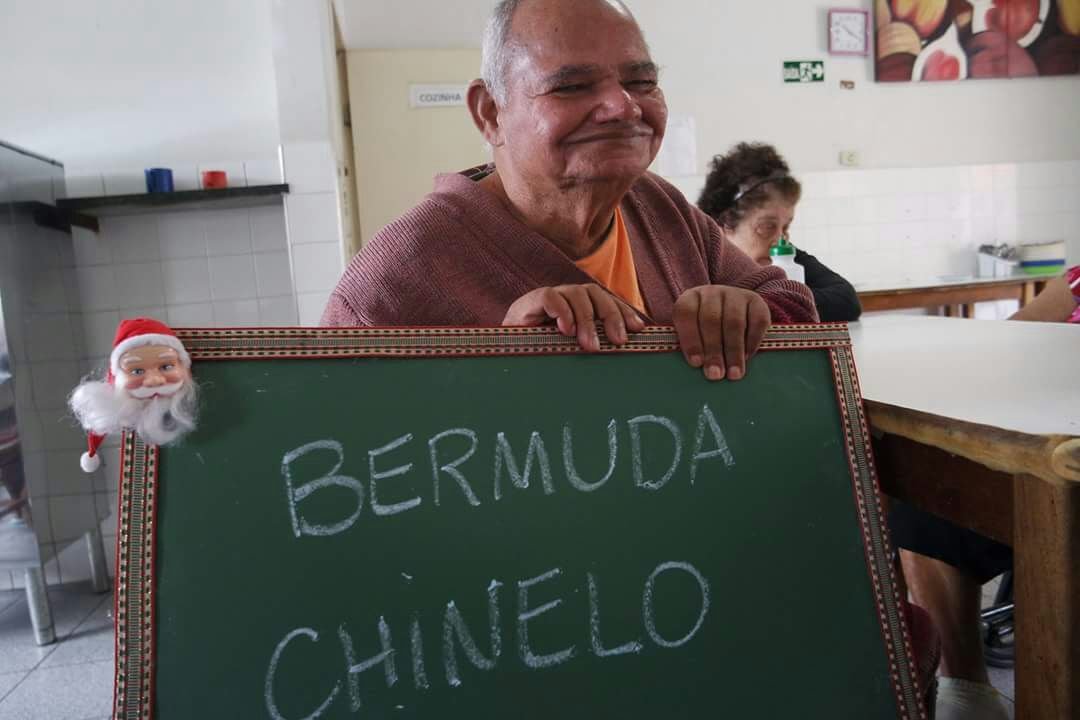 COZINHA
BERMUDA
CHINELO